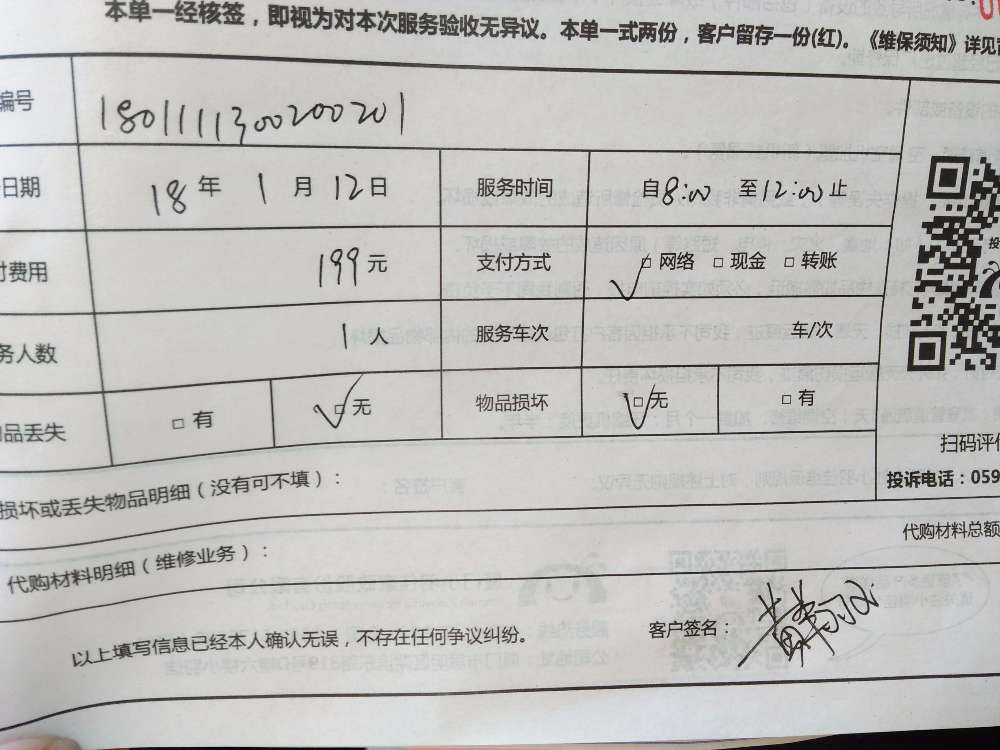 本单一经核签，即视为对本次服务验收无异议。本单一式两份，客户留存一份(红)。《维保须知》详见
编号 1801111300200201
日期 18 年 1 月 12 日 服务时间 自 8:00 至 12:00 止
付费用 199 元 支付方式 □ 网络 □ 现金 □ 转账
务人数 1 人 服务车次 车/次
品丢失 □ 有 □ 无 物品损坏 □ 无 □ 有
扫码评价
投诉电话：059
损坏或丢失物品明细（没有可不填）：
代购材料总额
代购材料明细（维修业务）：
以上填写信息已经本人确认无误，不存在任何争议纠纷。
客户签名：